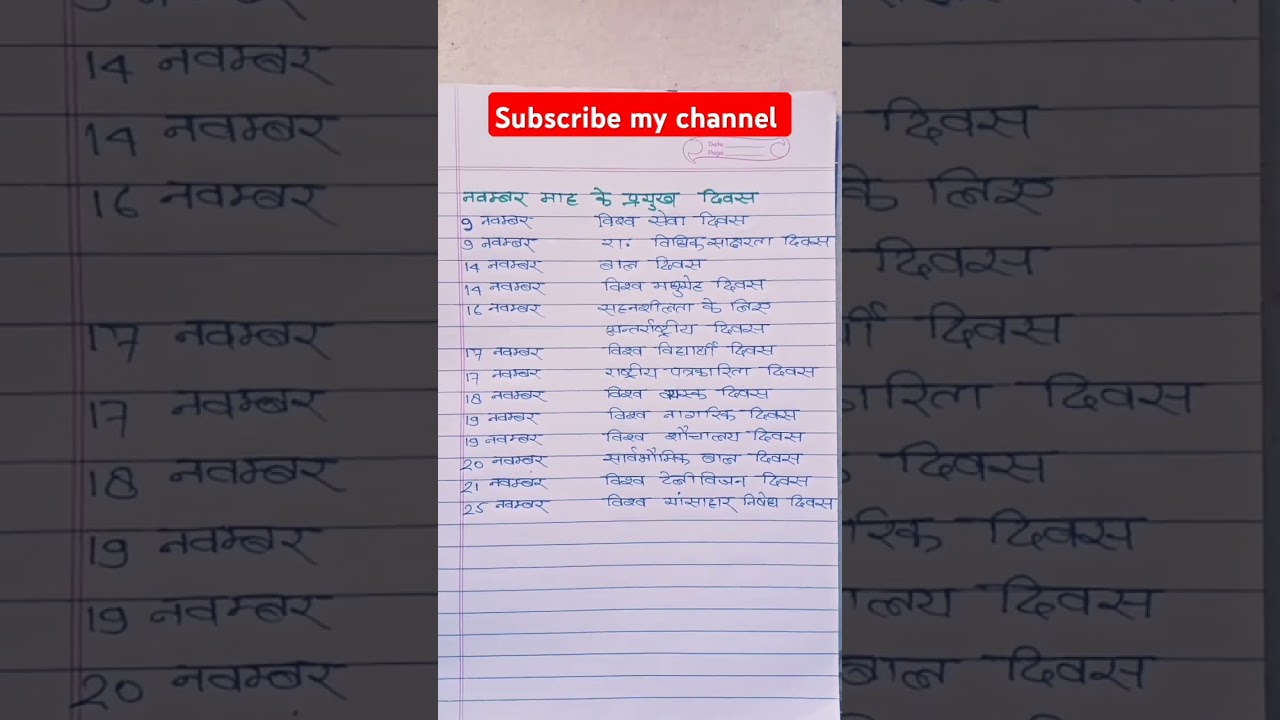 Subscribe my channel
Date
Page
नवम्बर माह के प्रमुख दिवस
9 नवम्बर विश्व सेवा दिवस
9 नवम्बर रा. विधिक साक्षरता दिवस
14 नवम्बर बाल दिवस
14 नवम्बर विश्व मधुमेह दिवस
16 नवम्बर सहनशीलता के लिए
अन्तर्राष्ट्रीय दिवस
17 नवम्बर विश्व विद्यार्थी दिवस
17 नवम्बर राष्ट्रीय पत्रकारिता दिवस
18 नवम्बर विश्व वयस्क दिवस
19 नवम्बर विश्व नागरिक दिवस
19 नवम्बर विश्व शौचालय दिवस
20 नवम्बर सार्वभौमिक बाल दिवस
21 नवम्बर विश्व टेलीविजन दिवस
25 नवम्बर विश्व मांसाहार निषेध दिवस
14 नवम्बर
14 नवम्बर दिवस
16 नवम्बर के लिए
दिवस
17 नवम्बर दिवस
17 नवम्बर दिवस
18 नवम्बर दिवस
19 नवम्बर दिवस
19 नवम्बर दिवस
20 नवम्बर बाल दिवस